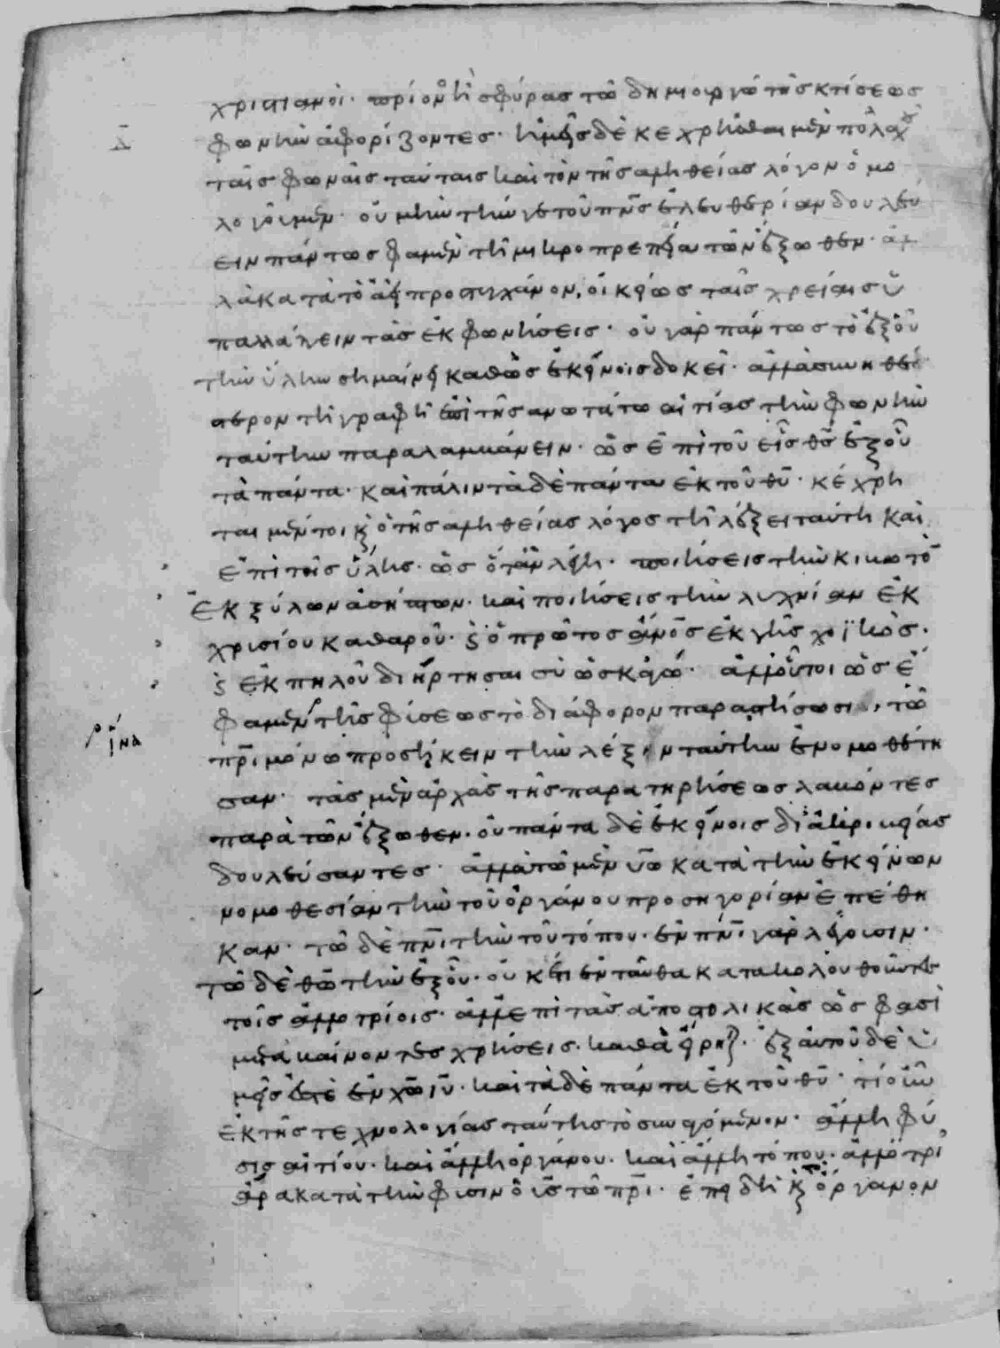 χριστιανοὶ· πρίονος ἢ σφύρας τῶ δημιουργῶ τῆς κτίσεως
φωνὴν ἀφορίζοντες· ἡμεῖς δὲ κεχρῆσθαι μὲν πολλαχοῦ
ταῖς φωναῖς ταύταις καὶ τὸν τῆς ἀληθείας λόγον ὁμο
λογοῦμεν· οὐ μὴν τήν γε τοῦ πνς ἐλευθερίαν δουλεύ
ειν πάντως φαμὲν τῆ μικροπρεπεία τῶν ἔξωθεν· ἀλ
λὰ κατὰ τὸ ἀεὶ προστυγχάνον, οἰκείως ταῖς χρείαις ὑ
παλλάγειν τὰς ἐκφωνήσεις· οὐ γὰρ πάντως τὸ ἐξ οὗ
τὴν ὕλην σημαίνει καθὼς ἐκείνοις δοκεῖ· ἀλλὰ συνηθέ
στερον τῆ γραφῆ ἐπὶ τῆς ἀνωτάτω αἰτίας τὴν φωνὴν
ταύτην παραλαμβάνειν· ὡς ἐπὶ τοῦ εἷς θς ἐξ οὗ
τὰ πάντα· καὶ πάλιν τὰ δὲ πάντα ἐκ τοῦ θυ· κέχρη
ται μέντοι κ ὁ τῆς ἀληθείας λόγος τῆ λέξει ταύτη καὶ
ἐπὶ τῆς ὕλης· ὡς ὅταν λέγη· ποιήσεις τὴν κιβωτὸν
ἐκ ξύλων ἀσήπτων· καὶ ποιήσεις τὴν λυχνίαν ἐκ
χρυσίου καθαροῦ· κ ὁ πρῶτος ἀνος ἐκ γῆς χοϊκός·
κ ἐκ πηλοῦ διήρτησαι σὺ ὡς κἀγώ· ἀλλ' οὗτοι ὡς ἔ
φαμεν τῆς φύσεως τὸ διάφορον παραστήσωσι, τῶ
πρι μόνω προσήκειν τὴν λέξιν ταύτην ἐνομοθέτη
σαν· τὰς μὲν ἀρχὰς τῆς παρατηρήσεως λαβόντες
παρὰ τῶν ἔξωθεν· οὐ πάντα δὲ ἐκείνοις δι' ἀκριβείας
δουλεύσαντες· ἀλλὰ τῶ μὲν υω κατὰ τὴν ἐκείνων
νομοθεσίαν τὴν τοῦ ὀργάνου προσηγορίαν ἐπέθη
καν· τῶ δὲ πνι τὴν τοῦ τόπου· ἐν πνι γὰρ λέγουσιν·
τῶ δὲ θω τὴν ἐξ οὗ· οὐκέτι ἐνταῦθα κατακολουθοῦντες
τοῖς ἀλλοτρίοις· ἀλλ' ἐπὶ τὰς ἀποστολικὰς ὥς φασι
μεταβαίνοντες χρήσεις· καθὰ εἴρηται· ἐξ αὐτοῦ δὲ ὑ
μεῖς ἐστὲ ἐν χω ιυ· καὶ τὰ δὲ πάντα ἐκ τοῦ θυ· τί οὖν
ἐκ τῆς τεχνολογίας ταύτης τὸ συναγόμενον· ἄλλη φύ
σις αἰτίου· καὶ ἄλλη ὀργάνου· καὶ ἄλλη τόπου· ἀλλότρι
ος ἄρα κατὰ τὴν φύσιν ὁ υς τῶ πρι· ἐπειδὴ κ τὸ ὄργανον